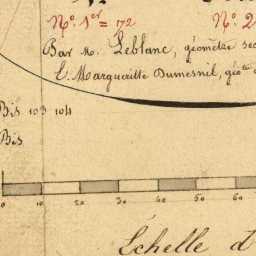 N.º 1er = 172 N.º 2
Par M. Leblanc, géomètre sec
E. Margueritte Dumesnil, géo
Bis 103 104
Bis
0 10 20 30 40 50 60
Échelle d